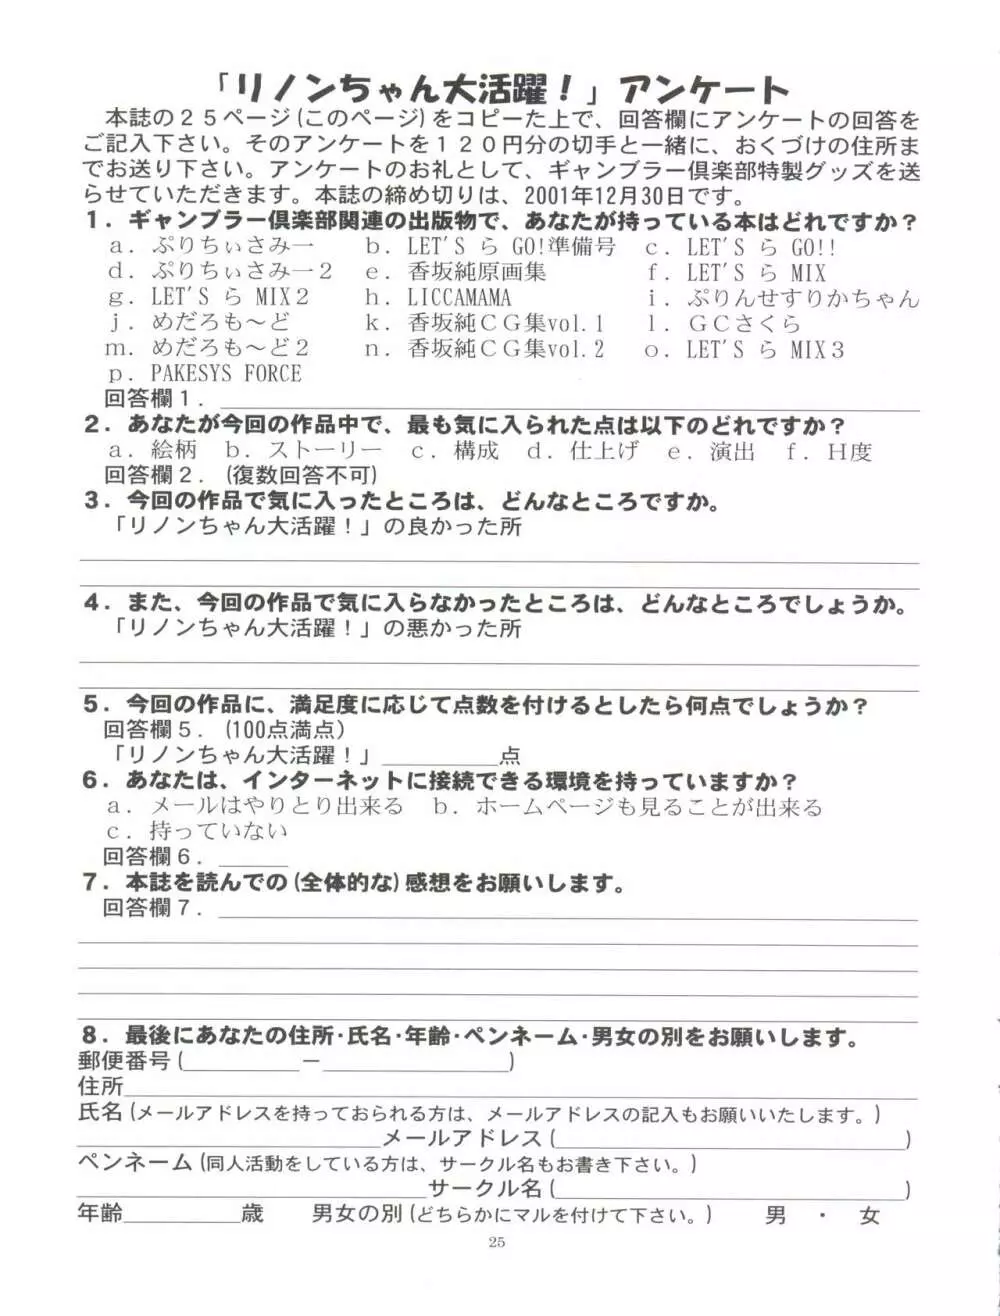 「リノンちゃん大活躍！」アンケート
本誌の２５ページ(このページ)をコピーた上で、回答欄にアンケートの回答を
ご記入下さい。そのアンケートを１２０円分の切手と一緒に、おくづけの住所ま
でお送り下さい。アンケートのお礼として、ギャンブラー倶楽部特製グッズを送
らせていただきます。本誌の締め切りは、2001年12月30日です。
１．ギャンブラー倶楽部関連の出版物で、あなたが持っている本はどれですか？
ａ．ぷりちぃさみー　ｂ．LET'S ら GO!準備号　ｃ．LET'S ら GO!!
ｄ．ぷりちぃさみー２　ｅ．香坂純原画集　ｆ．LET'S ら MIX
ｇ．LET'S ら MIX２　ｈ．LICCAMAMA　ｉ．ぷりんせすりかちゃん
ｊ．めだろも～ど　ｋ．香坂純ＣＧ集vol.1　ｌ．ＧＣさくら
ｍ．めだろも～ど２　ｎ．香坂純ＣＧ集vol.2　ｏ．LET'S ら MIX３
ｐ．PAKESYS FORCE
回答欄１．
２．あなたが今回の作品中で、最も気に入られた点は以下のどれですか？
ａ．絵柄　ｂ．ストーリー　ｃ．構成　ｄ．仕上げ　ｅ．演出　ｆ．Ｈ度
回答欄２．(復数回答不可)
３．今回の作品で気に入ったところは、どんなところですか。
「リノンちゃん大活躍！」の良かった所
４．また、今回の作品で気に入らなかったところは、どんなところでしょうか。
「リノンちゃん大活躍！」の悪かった所
５．今回の作品に、満足度に応じて点数を付けるとしたら何点でしょうか？
回答欄５．(100点満点)
「リノンちゃん大活躍！」＿＿＿＿＿点
６．あなたは、インターネットに接続できる環境を持っていますか？
ａ．メールはやりとり出来る　ｂ．ホームページも見ることが出来る
ｃ．持っていない
回答欄６．
７．本誌を読んでの(全体的な)感想をお願いします。
回答欄７．
８．最後にあなたの住所･氏名･年齢･ペンネーム･男女の別をお願いします。
郵便番号(＿＿＿＿＿－＿＿＿＿＿＿＿＿)
住所
氏名(メールアドレスを持っておられる方は、メールアドレスの記入もお願いいたします。)
メールアドレス(　　　　　)
ペンネーム(同人活動をしている方は、サークル名もお書き下さい。)
サークル名(　　　　　)
年齢＿＿＿＿＿歳　男女の別(どちらかにマルを付けて下さい。)　男　・　女
25